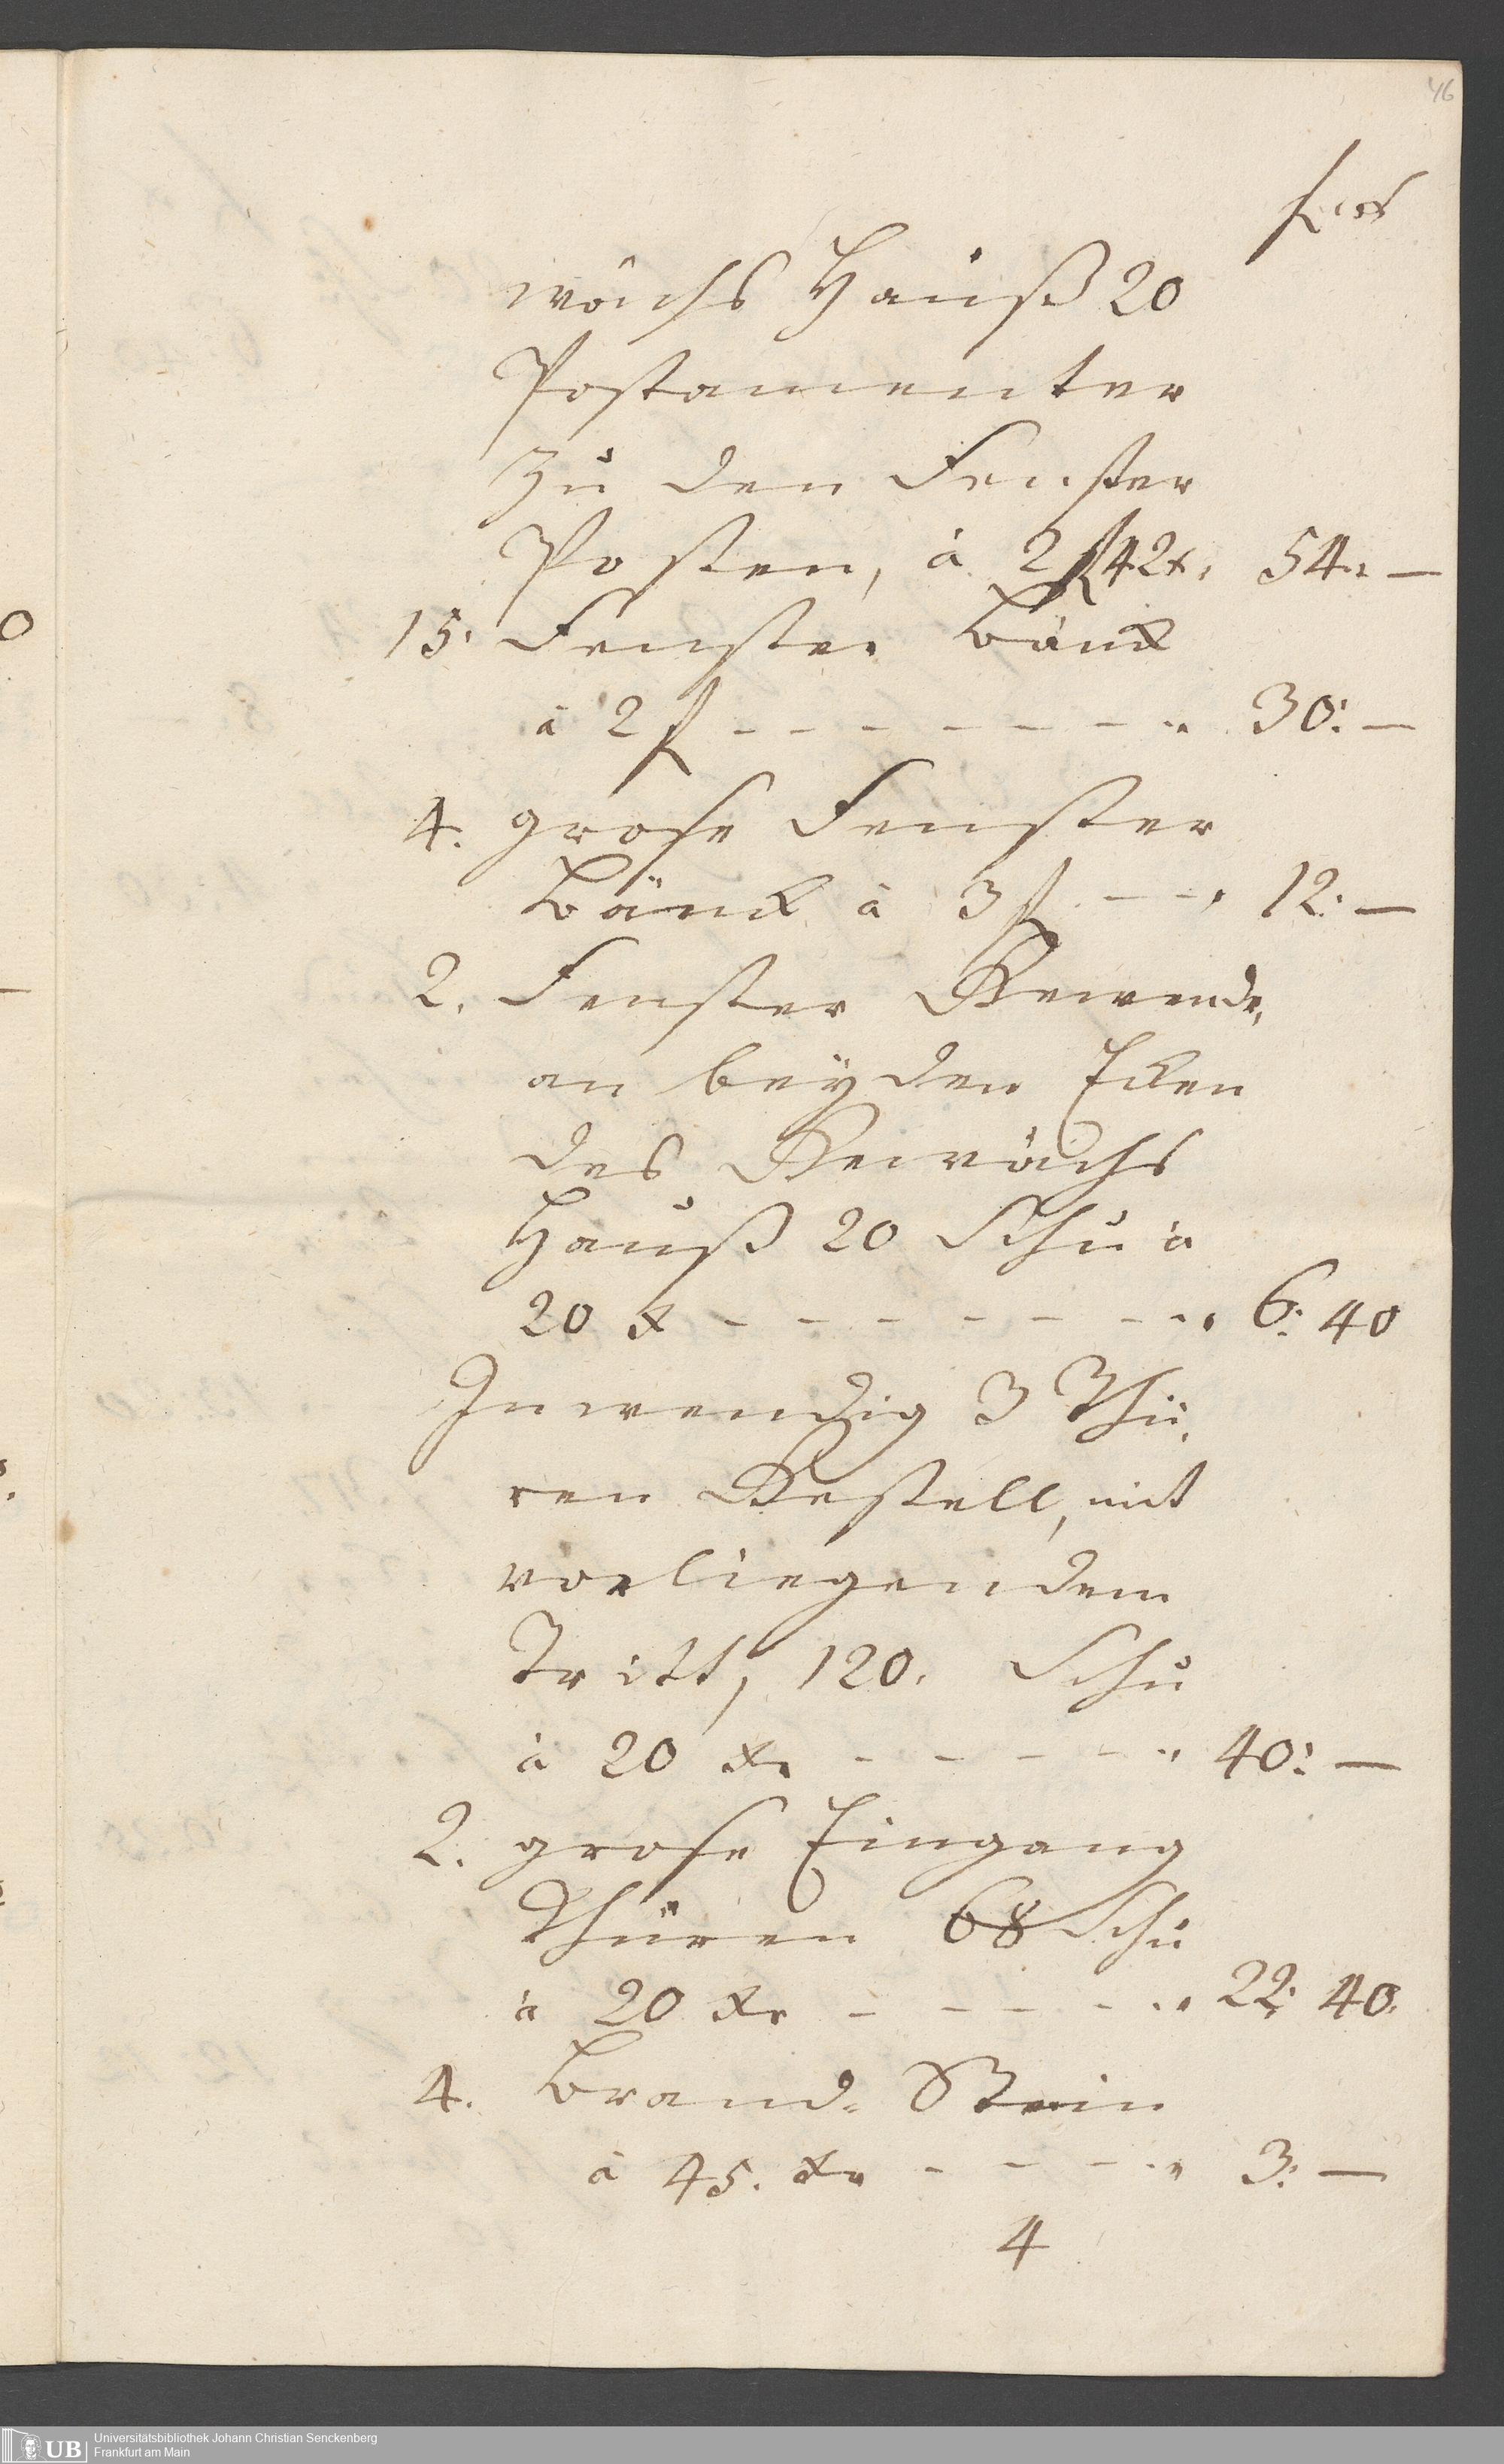 46
f xr
wächs Hauß 20
Postamenter
zu den Fenster
Posten, à 2 f 42 x. 54. —
15. Fenster Bänck
à 2 f - - - - - - - 30: —
4. grose Fenster
Bänck à 3 f - - - 12. —
2. Fenster Gewende,
an beyden Ecken
des Gewächs
Hauß 20 Schu à
20 x - - - - - - - 6: 40
Inwendig 3 Thü-
ren Gestell, mit
vorliegendem
Tritt, 120. Schu
à 20 xr - - - - - 40: —
2. grose Eingang
Thüren 68 Schu
à 20 xr - - - - - 22: 40.
4. Brand-Stein
à 45. xr - - - - 3: —
4
0
UB
Universitätsbibliothek Johann Christian Senckenberg
Frankfurt am Main